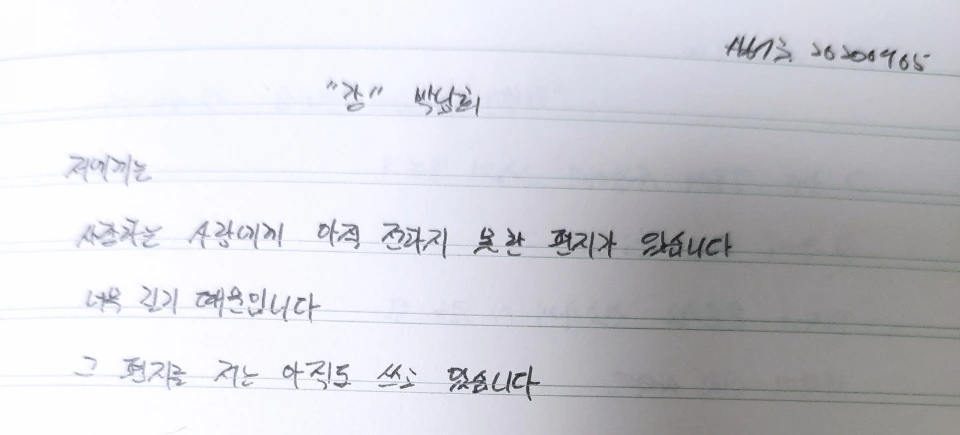 20200905
"강" 박남희
저에게는
사랑하는 사람에게 아직 전하지 못한 편지가 있습니다
너무 길기 때문입니다
그 편지를 저는 아직도 쓰고 있습니다